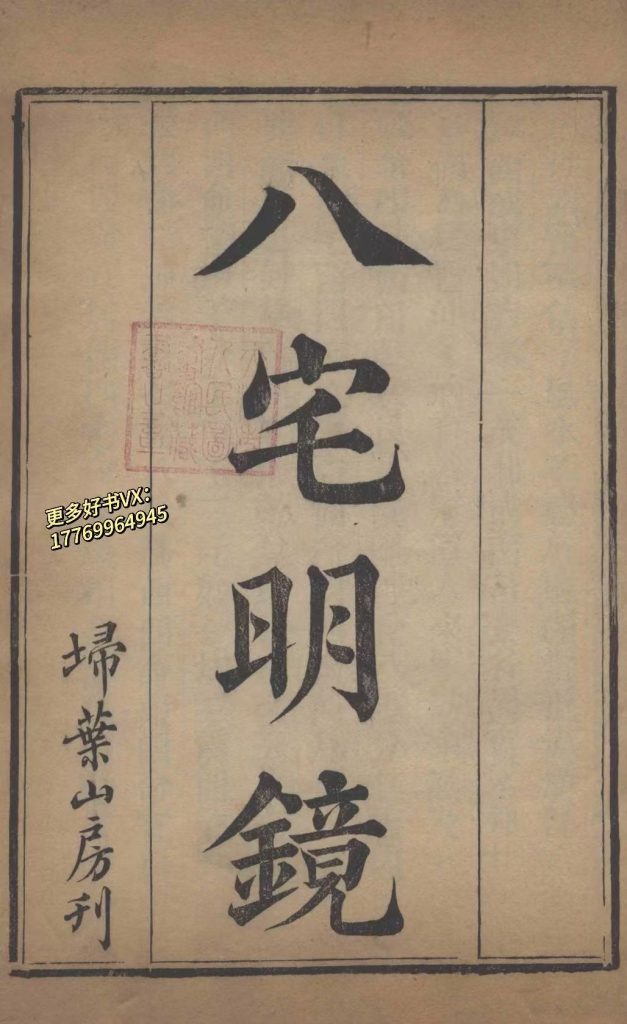 八宅明鏡
埽葉山房刊
更多好书VX:
17769964945